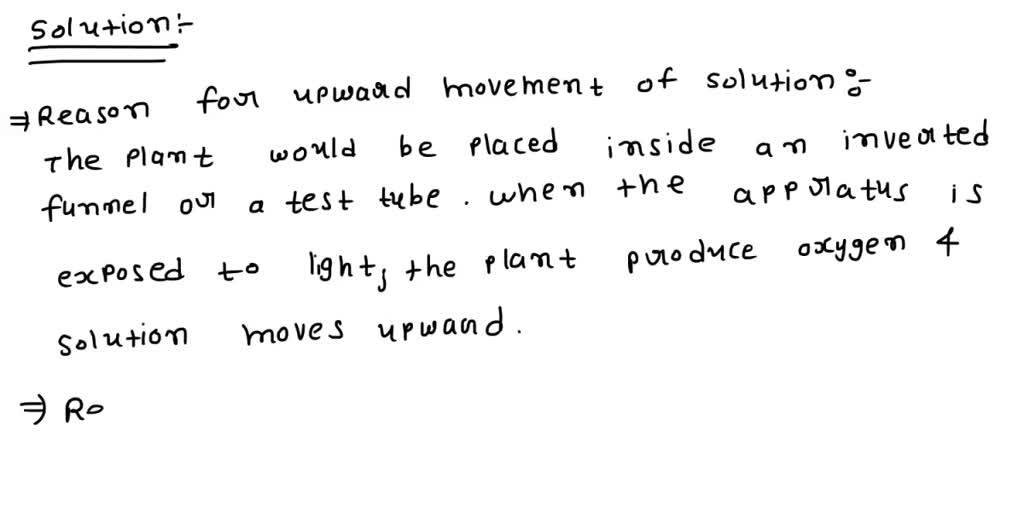 Solution:-
⇒ Reason for upward movement of solution:-
The plant would be placed inside an inverted
funnel or a test tube. when the appratus is
exposed to light, the plant produce oxygen &
solution moves upward.
⇒ Ro